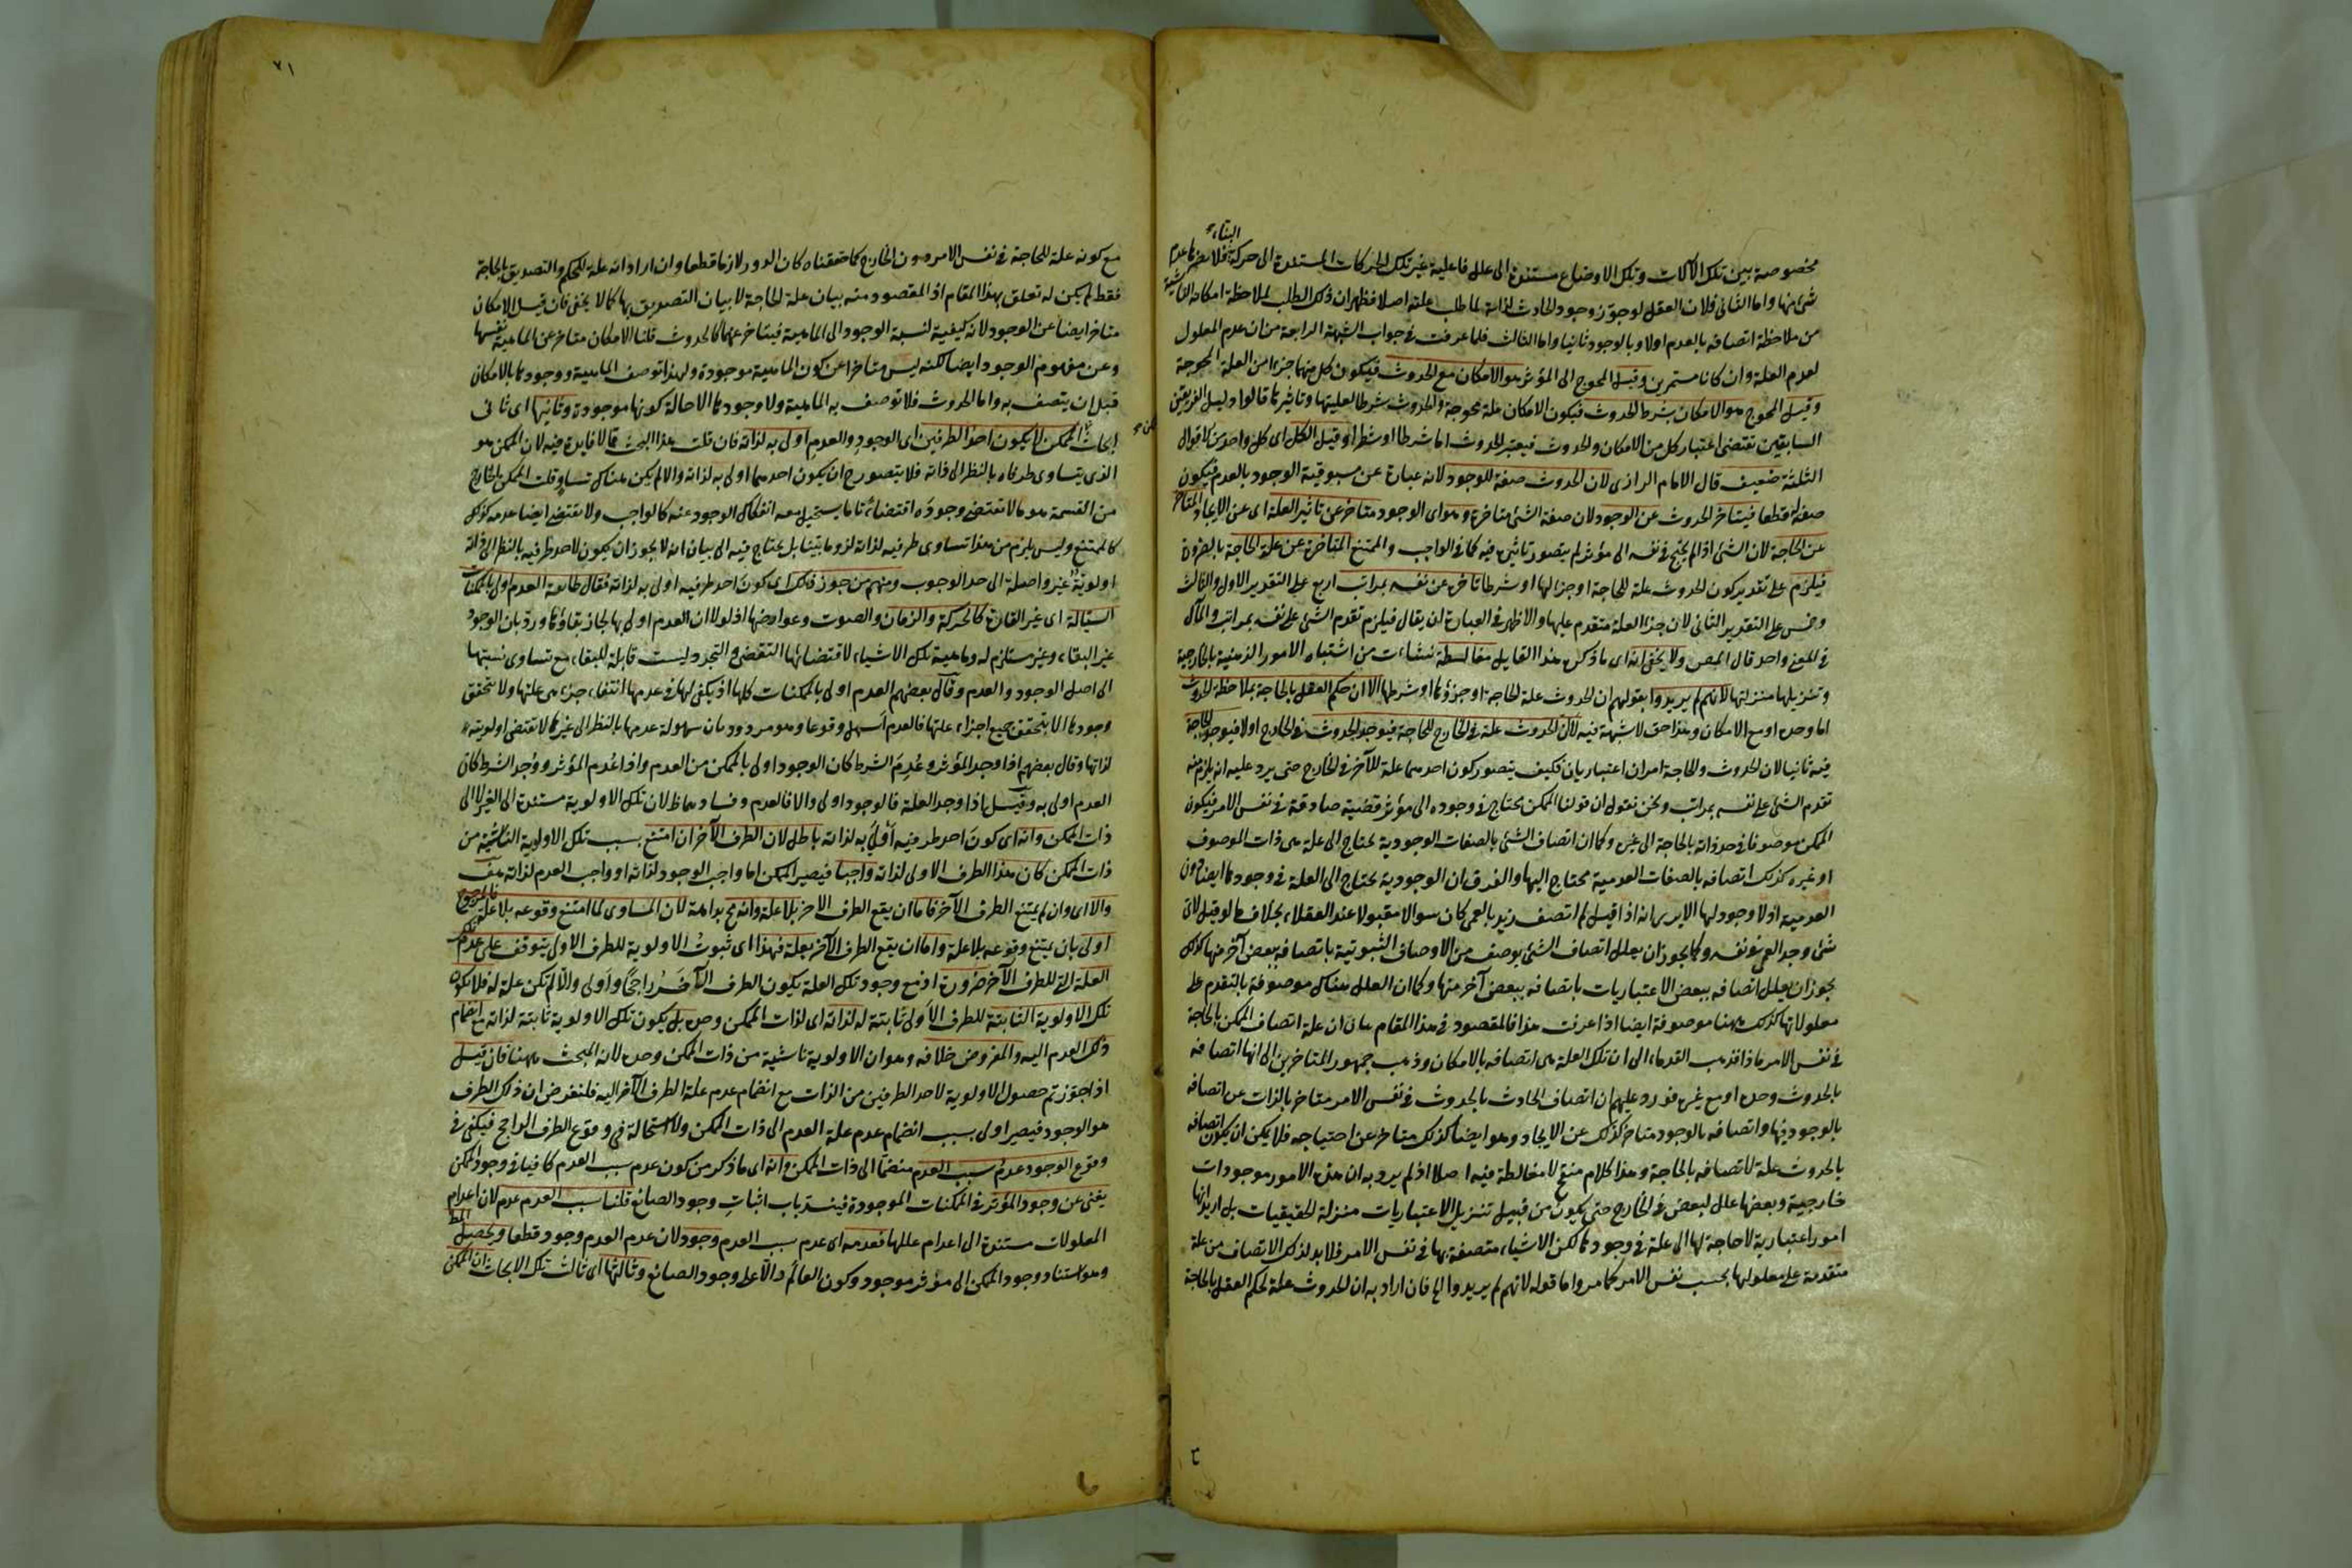 البناء
مخصوصة بين تلك الآلات وتلك الاوضاع مستندة الى علل فاعلية غير تلك الحركات المستندة الى حركة فلا يضرها عدم
شئ منها واما الثانى فلان العقل لو جوز وجود الحادث لذاته لما طلب علته اصلا فظهر ان ذلك الطلب لملاحظة امكانه الناشية
من ملاحظة اتصافه بالعدم اولا وبالوجود ثانيا واما الثالث فلما عرفت فى جواب الشبهة الرابعة من ان عدم المعلول
لعدم العلة وان كانا مستمرين وقيل المحوج الى المؤثر هو الامكان مع الحدوث فيكون كل منهما جزءا من العلة المحوجة
وقيل المحوج هو الامكان بشرط الحدوث فيكون الامكان علة محوجة والحدوث شرطا لعليتها وتاثيرها قالوا دليل الفريقين
السابقين تقتضى اعتبار كل من الامكان والحدوث فيعتبر الحدوث اما شرطا او شطرا وقيل الكل اى كل واحد من الاقوال
الثلثة ضعيف قال الامام الرازى لان الحدوث صفة للوجود لانه عبارة عن مسبوقية الوجود بالعدم فيكون
صفة له قطعا فيتاخر الحدوث عن الوجود لان صفة الشئ متاخرة وهو اى الوجود متاخر عن تاثير العلة اى عن الايجاد المتاخر
عن الحاجة لان الشئ اذا لم يحتج فى نفسه الى مؤثر لم يتصور تاثيره فيه كما فى الواجب والممتنع المتاخرة عن علة الحاجة بالضرورة
فيلزم على تقدير كون الحدوث علة للحاجة او جزءا لها او شرطا تاخره عن نفسه بمراتب اربع على التقدير الاول والثالث
وخمس على التقدير الثانى لان جزء العلة متقدم عليها والاظهر فى العبارة ان يقال فيلزم تقدم الشئ على نفسه بمراتب والمآل
فى المعنى واحد قال المص ولا يخفى انه اى ما ذكره هذا القايل مغالطة نشاءت من اشتباه الامور الذهنية بالخارجية
وتنزيلها منزلتها لانهم لم يريدوا بقولهم ان الحدوث علة الحاجة او جزؤها او شرطها الا ان حكم العقل بالحاجة بملاحظة الحدوث
اما وحده او مع الامكان وهذا حق لا شبهة فيه لا ان الحدوث علة فى الخارج للحاجة فيوجد الحدوث فى الخارج اولا فيوجد الحاجة
فيه ثانيا لان الحدوث والحاجة امران اعتباريان فكيف يتصور كون احدهما علة للآخر فى الخارج حتى يرد عليه انه يلزم منه
تقدم الشئ على نفسه بمراتب ونحن نقول ان قولنا الممكن محتاج فى وجوده الى مؤثر قضية صادقة فى نفس الامر فيكون
الممكن موصوفا فى حد ذاته بالحاجة الى غيره وكما ان اتصاف الشئ بالصفات الوجودية يحتاج الى علة هى ذات الموصوف
او غيره كذلك اتصافه بالصفات العدمية محتاج اليها والفرق ان الوجودية يحتاج الى العلة فى وجودها ايضا دون
العدمية اذ لا وجود لها الا يرى انه اذا قيل لم اتصف زيد بالعمى كان سوالا مقبولا عند العقلاء بخلاف ما لو قيل لاى
شئ وجد العمى فى نفسه وكما يجوز ان يعلل اتصاف الشئ بوصف من الاوصاف الثبوتية باتصافه ببعض آخر منها كذلك
يجوز ان يعلل اتصافه ببعض الاعتباريات باتصافه ببعض آخر منها وكما ان العلل هناك موصوفة بالتقدم على
معلولاتها كذلك ههنا موصوفة ايضا اذا عرفت هذا فالمقصود فى هذا المقام بيان ان علة اتصاف الممكن بالحاجة
فى نفس الامر ماذا فذهب القدماء الى ان تلك العلة هى اتصافه بالامكان وذهب جمهور المتاخرين الى انها اتصافه
بالحدوث وحده او مع غيره فورد عليهم ان اتصاف الحادث بالحدوث فى نفس الامر متاخر بالذات عن اتصافه
بالوجود فيها واتصافه بالوجود متاخر كذلك عن الايجاد وهو ايضا كذلك متاخر عن احتياجه فلا يمكن ان يكون اتصافه
بالحدوث علة لاتصافه بالحاجة وهذا كلام منقح لا مغالطة فيه اصلا اذ لم يرد به ان هذه الامور موجودات
خارجية وبعضها علل لبعض فى الخارج حتى يكون من قبيل تنزيل الاعتباريات منزلة الحقيقيات بل اريد انها
امور اعتبارية لا حاجة لها الى علة فى وجودها لكن الاشياء متصفة بها فى نفس الامر فلا بد لذلك الاتصاف من علة
متقدمة على معلولها بحسب نفس الامر كما مر واما قوله لانهم لم يريدوا الخ فان اراد به ان الحدوث علة لحكم العقل بالحاجة
٧١
مع كونه علة للحاجة فى نفس الامر دون الخارج كما حققناه كان الدور لازما قطعا وان اراد انه علة للحكم والتصديق بالحاجة
فقط لم يكن له تعلق بهذا المقام اذ المقصود منه بيان علة الحاجة لا بيان التصديق بها كما لا يخفى فان قيل الامكان
متاخر ايضا عن الوجود لانه كيفية لنسبة الوجود الى الماهية فيتاخر عنهما كالحدوث قلنا الامكان متاخر عن الماهية نفسها
وعن مفهوم الوجود ايضا لكنه ليس متاخرا عن كون الماهية موجودة ولهذا توصف الماهية ووجودها بالامكان
قبل ان يتصف به واما الحدوث فلا توصف به الماهية ولا وجودها الا حالة كونها موجودة وثانيها اى ثانى
ابحاث الممكن لا يكون احد الطرفين اى الوجود والعدم اولى به لذاته فان قلت هذا البحث مما لا فايدة فيه لان الممكن هو
الذى يتساوى طرفاه بالنظر الى ذاته فلا يتصور ح ان يكون احدهما اولى به لذاته والا لم يكن هناك تساو قلت الممكن الخارج
من القسمة هو ما لا تقتضى وجوده اقتضاء تاما يستحيل معه انفكاك الوجود عنه كالواجب ولا تقتضى ايضا عدمه كذلك
كالممتنع وليس يلزم من هذا تساوى طرفيه لذاته لزوما بينا بل يحتاج فيه الى بيان انه لا يجوز ان يكون لاحد طرفيه بالنظر الى ذاته
اولوية غير واصلة الى حد الوجوب ومنهم من جوز ذلك اى كون احد طرفيه اولى به لذاته فقال طائفة العدم اولى بالممكنات
السيالة اى غير القارة كالحركة والزمان والصوت وعوارضها اذ لولا ان العدم اولى بها لجاز بقاؤها ورد بان الوجود
غير البقاء وغير مستلزم له وماهية تلك الاشياء لاقتضائها التقضى والتجدد ليست قابلة للبقاء مع تساوى نسبتها
الى اصل الوجود والعدم وقال بعضهم العدم اولى بالممكنات كلها اذ يكفى لها فى عدمها انتفاء جزء من علتها ولا يتحقق
وجودها الا بتحقق جميع اجزاء علتها فالعدم اسهل وقوعا وهو مردود بان سهولة عدمها بالنظر الى غيرها لا تقتضى اولويته
لذاتها وقال بعضهم اذا وجد المؤثر وعدم الشرط كان الوجود اولى بالممكن من العدم واذا عدم المؤثر ووجد الشرط كان
العدم اولى به وقيل اذا وجد العلة فالوجود اولى والا فالعدم وفسادهما ظ لان تلك الاولوية مستندة الى الغير لا الى
ذات الممكن وانه اى كون احد طرفيه اولى به لذاته باطل لان الطرف الآخر ان امتنع بسبب تلك الاولوية الناشية من
ذات الممكن كان هذا الطرف الاولى لذاته واجبا فيصير الممكن اما واجب الوجود لذاته او واجب العدم لذاته هف
والا اى وان لم يمتنع الطرف الآخر فاما ان يقع الطرف الاخر بلا علة وانه مح بداهة لان المساوى لما امتنع وقوعه بلا علة فالمرجوح
اولى بان يمتنع وقوعه بلا علة واما ان يقع الطرف الآخر بعلة فهذا اى ثبوت الاولوية للطرف الاولى يتوقف على عدم تلك
العلة التى للطرف الآخر ضرورة اذ مع وجود تلك العلة يكون الطرف الآخر راجحا واولى والا لم تكن علة له فلا تكون
تلك الاولوية الثابتة للطرف الاولى ثابتة له لذاته اى لذات الممكن وحده بل يكون تلك الاولوية ثابتة لذاته مع انضمام
ذلك العدم اليه والمفروض خلافه وهو ان الاولوية ناشية من ذات الممكن وحده لانه المبحث ههنا فان قيل
اذا جوزتم حصول الاولوية لاحد الطرفين من الذات مع انضمام عدم علة الطرف الآخر اليه فلنفرض ان ذلك الطرف
هو الوجود فيصير اولى بسبب انضمام عدم علة العدم الى ذات الممكن ولا استحالة فى وقوع الطرف الراجح فيكفى فى
وقوع الوجود عدم سبب العدم منضما الى ذات الممكن وانه اى ما ذكر من كون عدم سبب العدم كافيا فى وجود الممكن
يغنى عن وجود المؤثر فى الممكنات الموجودة فينسد باب اثبات وجود الصانع قلنا سبب العدم عدم لان اعدام
المعلولات مستندة الى اعدام عللها فعدمه اى عدم سبب العدم وجود لان عدم العدم وجود قطعا ويحصل المط
وهو استناد وجود الممكن الى مؤثر موجود وكون العالم دالا على وجود الصانع وثالثها اى ثالث تلك الابحاث ان الممكن